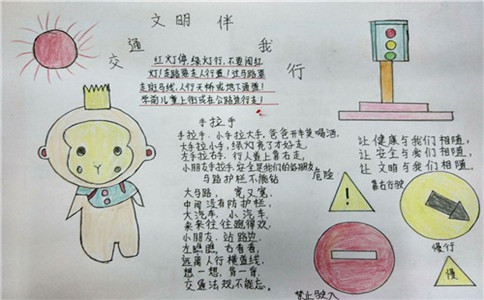 文明伴
交通 我行
红灯停,绿灯行,不要闯红
灯!走路要走人行道!过马路要
走斑马线,人行天桥或地下通道!
学前儿童上街或在公路边行走!
手拉手
手拉手,小手拉大手,爸爸开车莫喝酒,
大手拉小手,绿灯亮了才好走,
左手拉右手,行人道上靠右走,
小朋友手拉手,安全是我们的好朋友。
马路护栏不能钻
大马路,宽又宽,
中间没有防护栏,
大汽车,小汽车,
来来往往跑得欢,
小朋友,站路边,
左瞧瞧,右看看,
远离人行横道线,
想一想,背一背,
交通法规不能忘。
让健康与我们相随
让安全与我们相随
让文明与我们相随
危险
!
靠右行驶
禁止驶入
慢行
慢